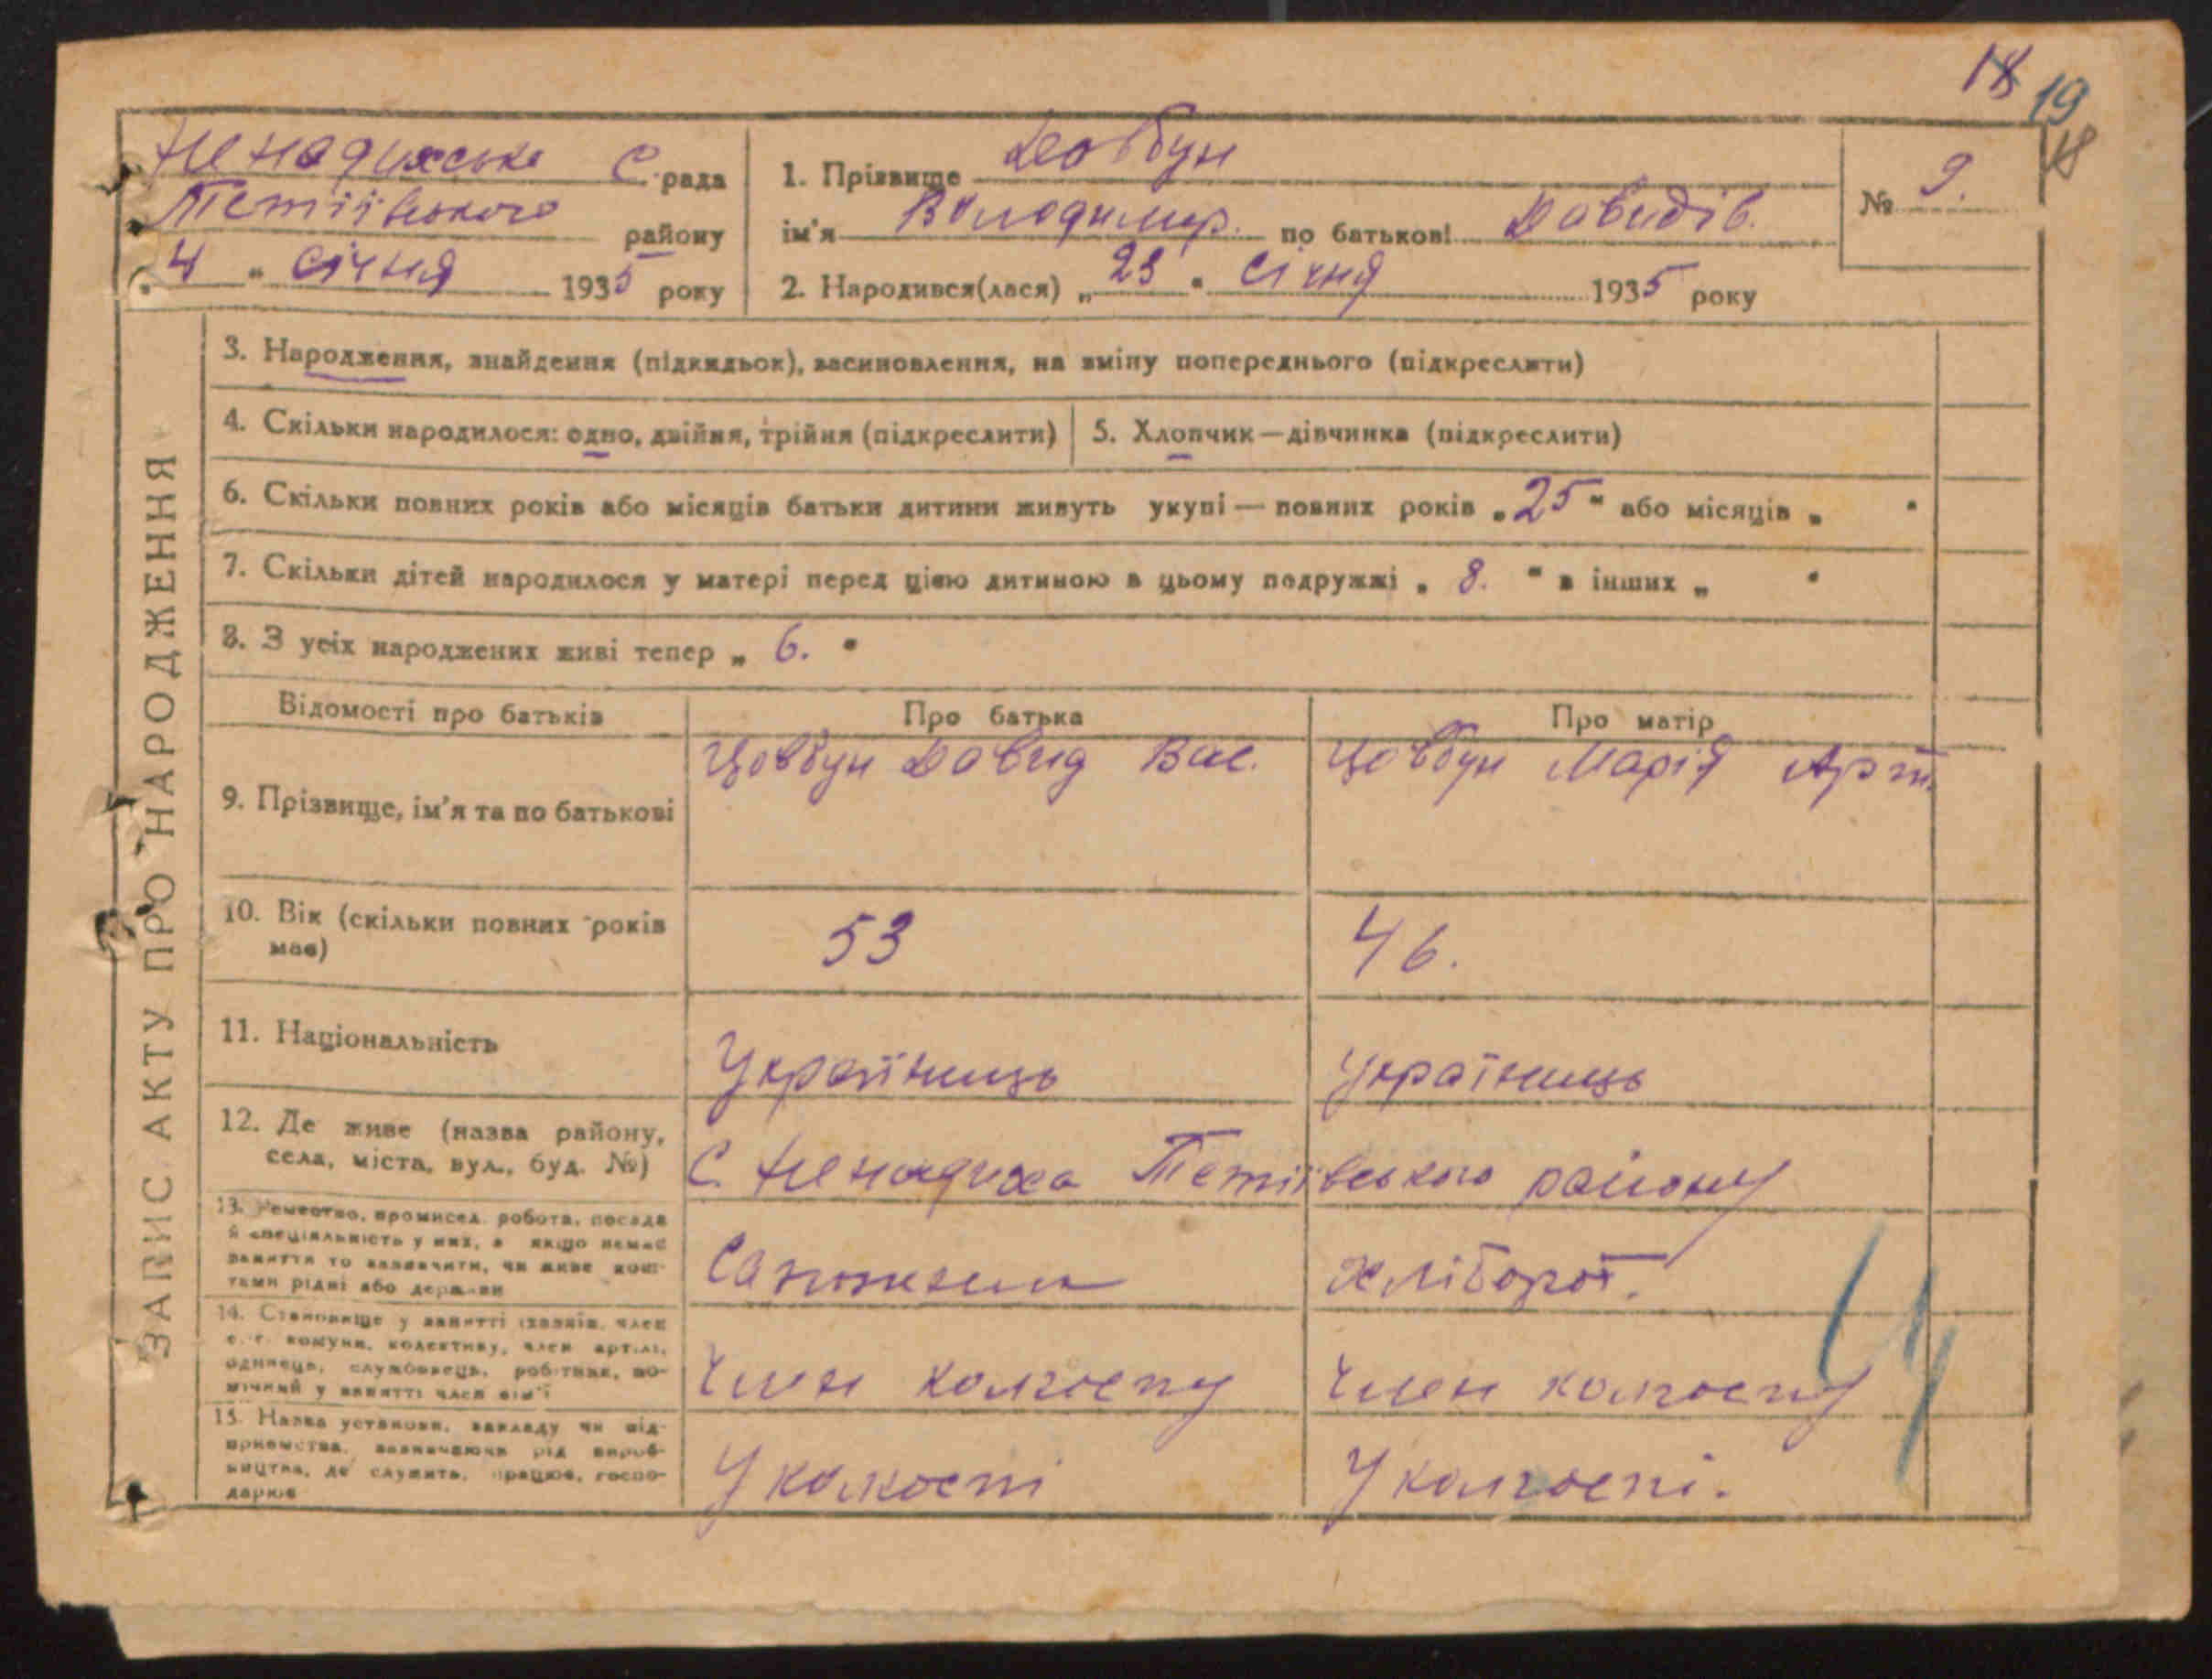 18 19
18
Ненадихська С. рада
Тетіївського району
"4" січня 1935 року
1. Прізвище Довбун
ім'я Володимир. по батькові Давидів.
2. Народився(лася) „23" січня 1935 року
№ 9.
ЗАПИС АКТУ ПРО НАРОДЖЕННЯ
3. Народження, знайдення (підкидьок), засиновлення, на зміну попереднього (підкреслити)
4. Скільки народилося: одно, двійня, трійня (підкреслити)
5. Хлопчик—дівчинка (підкреслити)
6. Скільки повних років або місяців батьки дитини живуть укупі — повних років „25" або місяців „ "
7. Скільки дітей народилося у матері перед цією дитиною в цьому подружжі „ 8. " в інших „ "
8. З усіх народжених живі тепер „ 6. "
Відомості про батьків Про батька Про матір
9. Прізвище, ім'я та по батькові
Цовбун Давид Вас. Цовбун Марія Арт.
10. Вік (скільки повних років має)
53 46.
11. Національність
Українець Українець
12. Де живе (назва району, села, міста, вул., буд. №)
С. Ненадиха Тетіївського району
13. Ремество, промисел, робота, посада й спеціальність у них, а якщо немає заняття то зазначити, чи живе коштами рідні або держави
Сапожник Хлібороб.
14. Становище у занятті (хазяїн, член с.-г. комуни, колективу, член артілі, одинець, службовець, робітник, помічний у занятті член сім'ї
Член колгоспу Член колгоспу
15. Назва установи, закладу чи підприємства, зазначаючи рід виробництва, де служить, працює, господарює
У колгоспі У колгоспі.